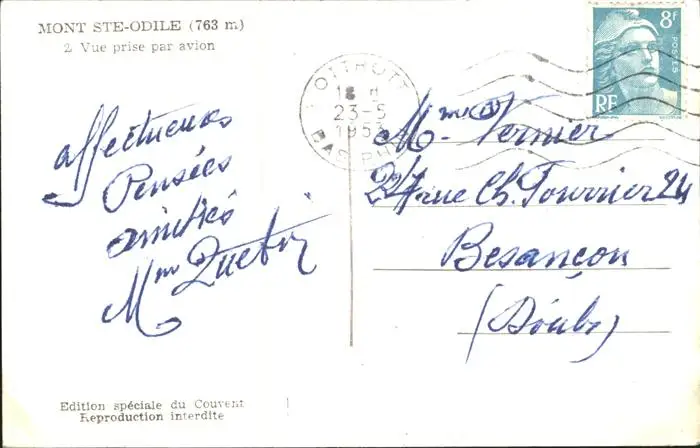 MONT STE-ODILE (763 m)
2 Vue prise par avion
affectueuses
Pensées
amitiés
Mme
8F
POSTES
RF
OTTROTT
23-5
1953
BAS-RHIN
Mme Vernier
24 rue Ch. Fourrier 24
Besançon
(Doubs)
Edition spéciale du Couvent
Reproduction interdite